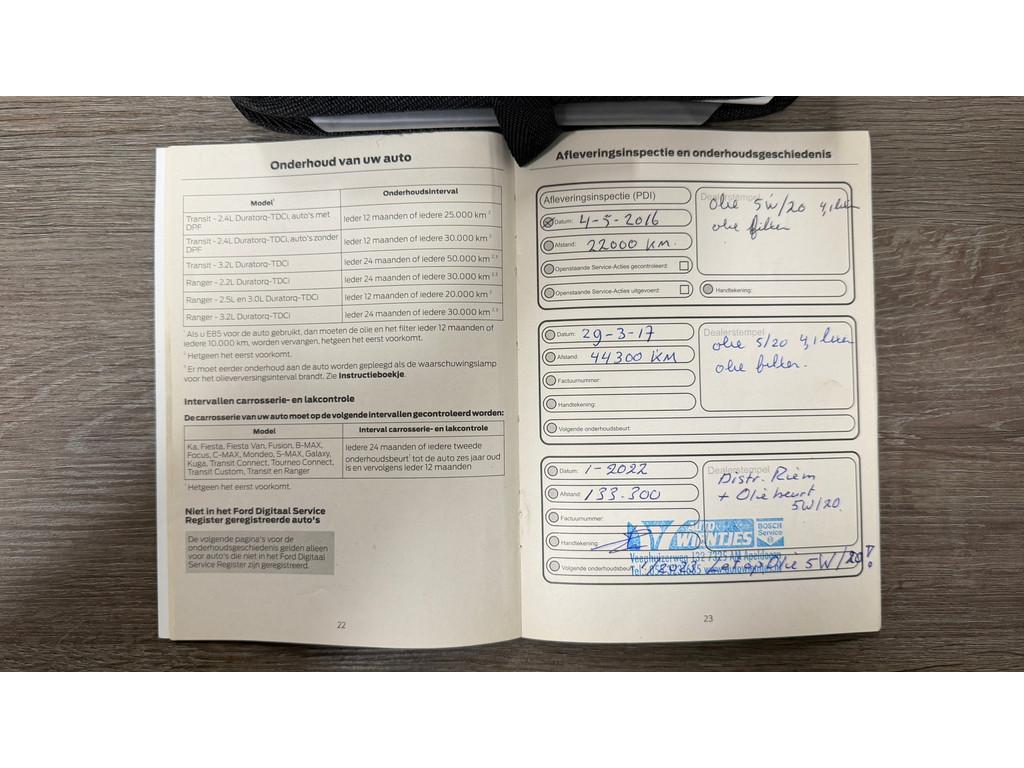 Onderhoud van uw auto
Model¹ Onderhoudsinterval
Transit - 2.4L Duratorq-TDCi, auto's met DPF Ieder 12 maanden of iedere 25.000 km ²
Transit - 2.4L Duratorq-TDCi, auto's zonder DPF Ieder 12 maanden of iedere 30.000 km ²
Transit - 3.2L Duratorq-TDCi Ieder 24 maanden of iedere 50.000 km ²,³
Ranger - 2.2L Duratorq-TDCi Ieder 24 maanden of iedere 30.000 km ²,³
Ranger - 2.5L en 3.0L Duratorq-TDCi Ieder 12 maanden of iedere 20.000 km ²
Ranger - 3.2L Duratorq-TDCi Ieder 24 maanden of iedere 30.000 km ²,³
¹ Als u E85 voor de auto gebruikt, dan moeten de olie en het filter ieder 12 maanden of
iedere 10.000 km, worden vervangen, hetgeen het eerst voorkomt.
² Hetgeen het eerst voorkomt.
³ Er moet eerder onderhoud aan de auto worden gepleegd als de waarschuwingslamp
voor het olieverversingsinterval brandt. Zie Instructieboekje.
Intervallen carrosserie- en lakcontrole
De carrosserie van uw auto moet op de volgende intervallen gecontroleerd worden:
Model Interval carrosserie- en lakcontrole
Ka, Fiesta, Fiesta Van, Fusion, B-MAX,
Focus, C-MAX, Mondeo, S-MAX, Galaxy,
Kuga, Transit Connect, Tourneo Connect,
Transit Custom, Transit en Ranger
Ieder 24 maanden of iedere tweede
onderhoudsbeurt¹ tot de auto zes jaar oud
is en vervolgens ieder 12 maanden
¹ Hetgeen het eerst voorkomt.
Niet in het Ford Digitaal Service
Register geregistreerde auto's
De volgende pagina's voor de
onderhoudsgeschiedenis gelden alleen
voor auto's die niet in het Ford Digitaal
Service Register zijn geregistreerd.
22
Afleveringsinspectie en onderhoudsgeschiedenis
Afleveringsinspectie (PDI)
Datum: 4-5-2016
Afstand: 22000 KM.
Openstaande Service-Acties gecontroleerd:
Openstaande Service-Acties uitgevoerd:
Dealerstempel
Olie 5W/20 4,1 liter
olie filter
Handtekening:
Datum: 29-3-17
Afstand: 44300 KM
Factuurnummer:
Handtekening:
Volgende onderhoudsbeurt:
Dealerstempel
olie 5/20 4,1 liter
olie filter.
Datum: 1-2022
Afstand: 133.300
Factuurnummer:
Handtekening:
Volgende onderhoudsbeurt:
Dealerstempel
Distr. Riem
+ Oliebeurt
5W/20.
WINTJES
BOSCH
Service
Olie 5W/20!
23